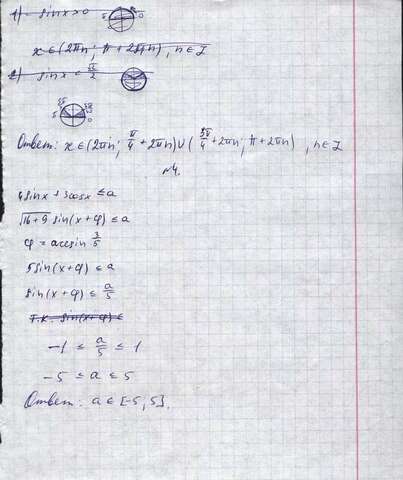 1) sinx>0
x ∈ (2πn; π + 2πn), n ∈ Z
2) sinx < √2/2
Ответ: x ∈ (2πn; π/4 + 2πn) ∪ (3π/4 + 2πn; π + 2πn), n ∈ Z
№4.
4sinx + 3cosx ≤ a
√16+9 sin(x+φ) ≤ a
φ = arcsin 3/5
5sin(x+φ) ≤ a
sin(x+φ) ≤ a/5
т.к. sin(x+φ) ≤
-1 ≤ a/5 ≤ 1
-5 ≤ a ≤ 5
Ответ: a ∈ [-5, 5].